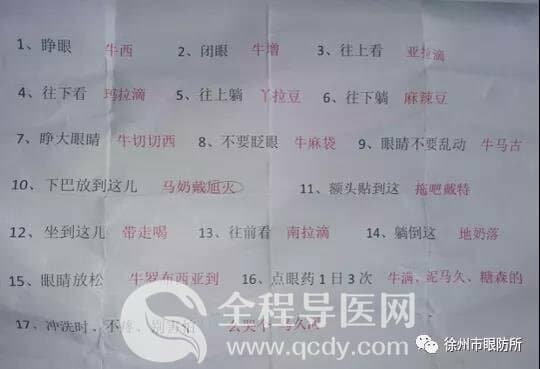 1、睁眼 牛西 2、闭眼 牛增 3、往上看 亚拉滴
4、往下看 玛拉滴 5、往上躺 丫拉豆 6、往下躺 麻辣豆
7、睁大眼睛 牛切切西 8、不要眨眼 牛麻袋 9、眼睛不要乱动 牛马古
10、下巴放到这儿 马奶戴旭灭 11、额头贴到这 拖吧戴特
12、坐到这儿 带走喝 13、往前看 南拉滴 14、躺倒这 地奶落
15、眼睛放松 牛罗布西亚到 16、点眼药1日3次 牛满、泥马久、糖森的
17、冲洗时，不疼，别害怕
全程导医网
www.qcdy.com
徐州市眼防所